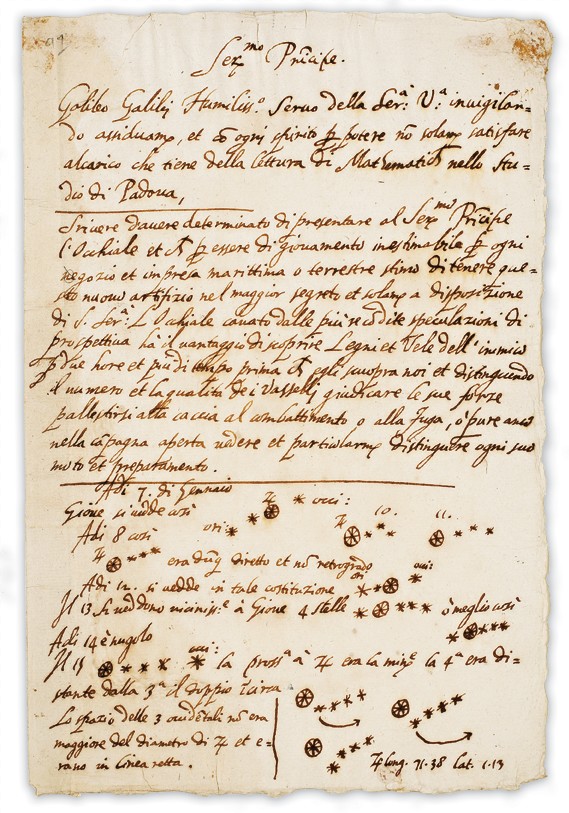 Ser.mo Principe.
Galileo Galilej Humiliss.o Seruo della Ser.a V.a inuigilan=
do assiduam.e, et cõ ogni spirito p potere nõ solam.e satisfare
al carico che tiene della lettura di Mathematica nello Stu=
dio di Padoua,
Scriuere d'auere determinato di presentare al Ser.mo Principe
l'Occhiale et p essere di giouamento inestimabile p ogni
negozio et impresa marittima o terrestre stimo di tenere que=
sto nuouo artifizio nel maggior segreto et solam.e a disposizione
di S. Ser.a L'Occhiale cauato dalle più recõdite speculazioni di
prospettiua hà il vantaggio di scoprire Legni et Vele dell'inimico
p due hore et più di tempo prima ch egli scuopra noi et distinguendo
il numero et la qualità dei Vasselli giudicare le sue forze
pallestirsi alla caccia al combattimento o alla fuga, ò pure anco
nella cãpagna aperta uedere et particularm.e distinguere ogni suo
moto et preparamento.
Adi 7. di Gennaio
Gioue si uedde così ♃ occi:
Adi 8 così ori: ♃ 10. 11.
♃ era dũq diretto et nõ retrogrado
Adi 12. si uedde in tale costituzione ori occi:
Il 13 si ueddono uiciniss.e à Gioue 4 stelle ò meglio così
Adi 14 è nugolo
Il 15 occi: la pross.a à ♃ era la min.e la 4.a era di=
stante dalla 3.a il doppio circa
Lo spazio delle 3 occidẽtali nõ era
maggiore del diametro di ♃ et e=
rano in linea retta.
♃ long. 71.38 lat. 1.13